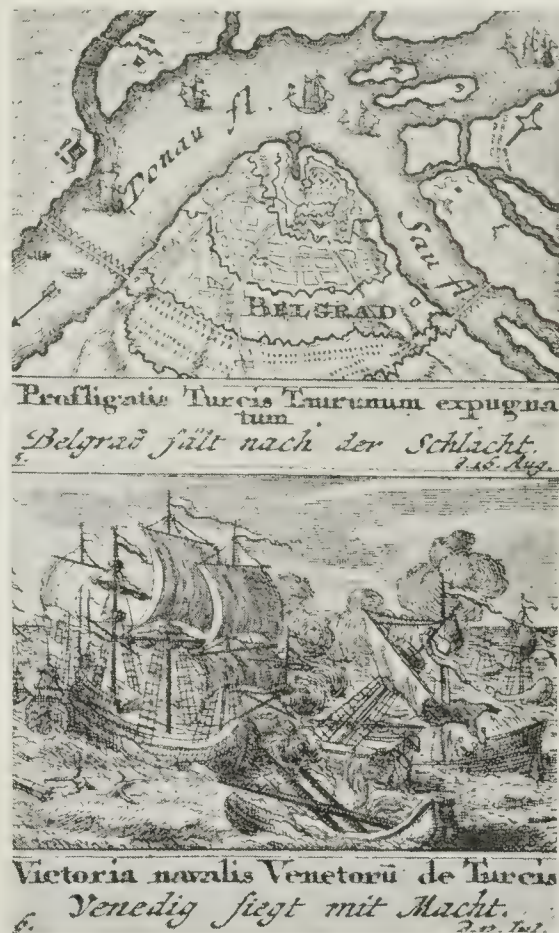 Donau fl.
Sau fl
BELGRAD
Profligatis Turcis Taurunum expugna
tum
Belgrad fält nach der Schlacht.
5. d. 16. Aug.
Victoria navalis Venetorū de Turcis
Venedig siegt mit Macht.
6. Jul.